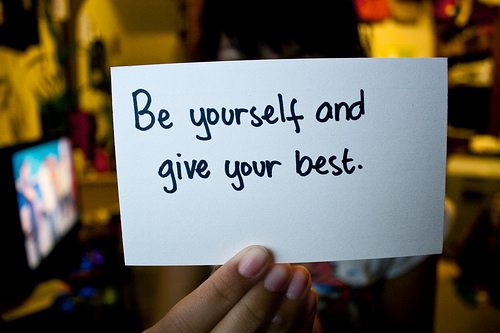 Be yourself and
give your best.